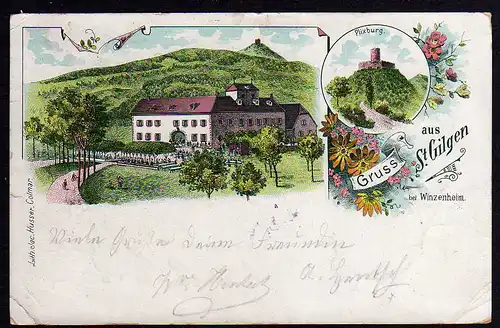 Plixburg.
Gruss
aus
St Gilgen
bei Winzenheim.
Lith. Jac. Husser, Colmar
Viele Grüße Deine Freundin